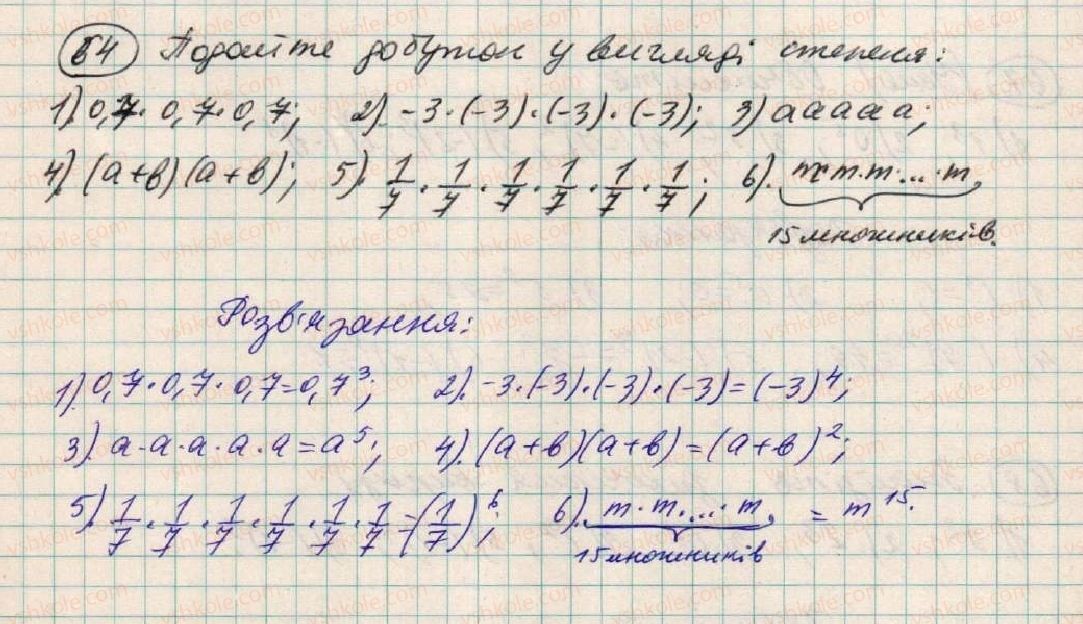 54 Подайте добуток у вигляді степеня:
1). 0,7 · 0,7 · 0,7; 2). -3 · (-3) · (-3) · (-3); 3) a a a a a;
4). (a + b) (a + b); 5). 1/7 · 1/7 · 1/7 · 1/7 · 1/7 · 1/7; 6). m · m · m · ... · m,
15 множників.
Розв'язання:
1). 0,7 · 0,7 · 0,7 = 0,7³; 2). -3 · (-3) · (-3) · (-3) = (-3)⁴;
3). a · a · a · a · a = a⁵; 4). (a + b)(a + b) = (a + b)²;
5). 1/7 · 1/7 · 1/7 · 1/7 · 1/7 · 1/7 = (1/7)⁶; 6). m · m · ... · m, = m¹⁵.
15 множників